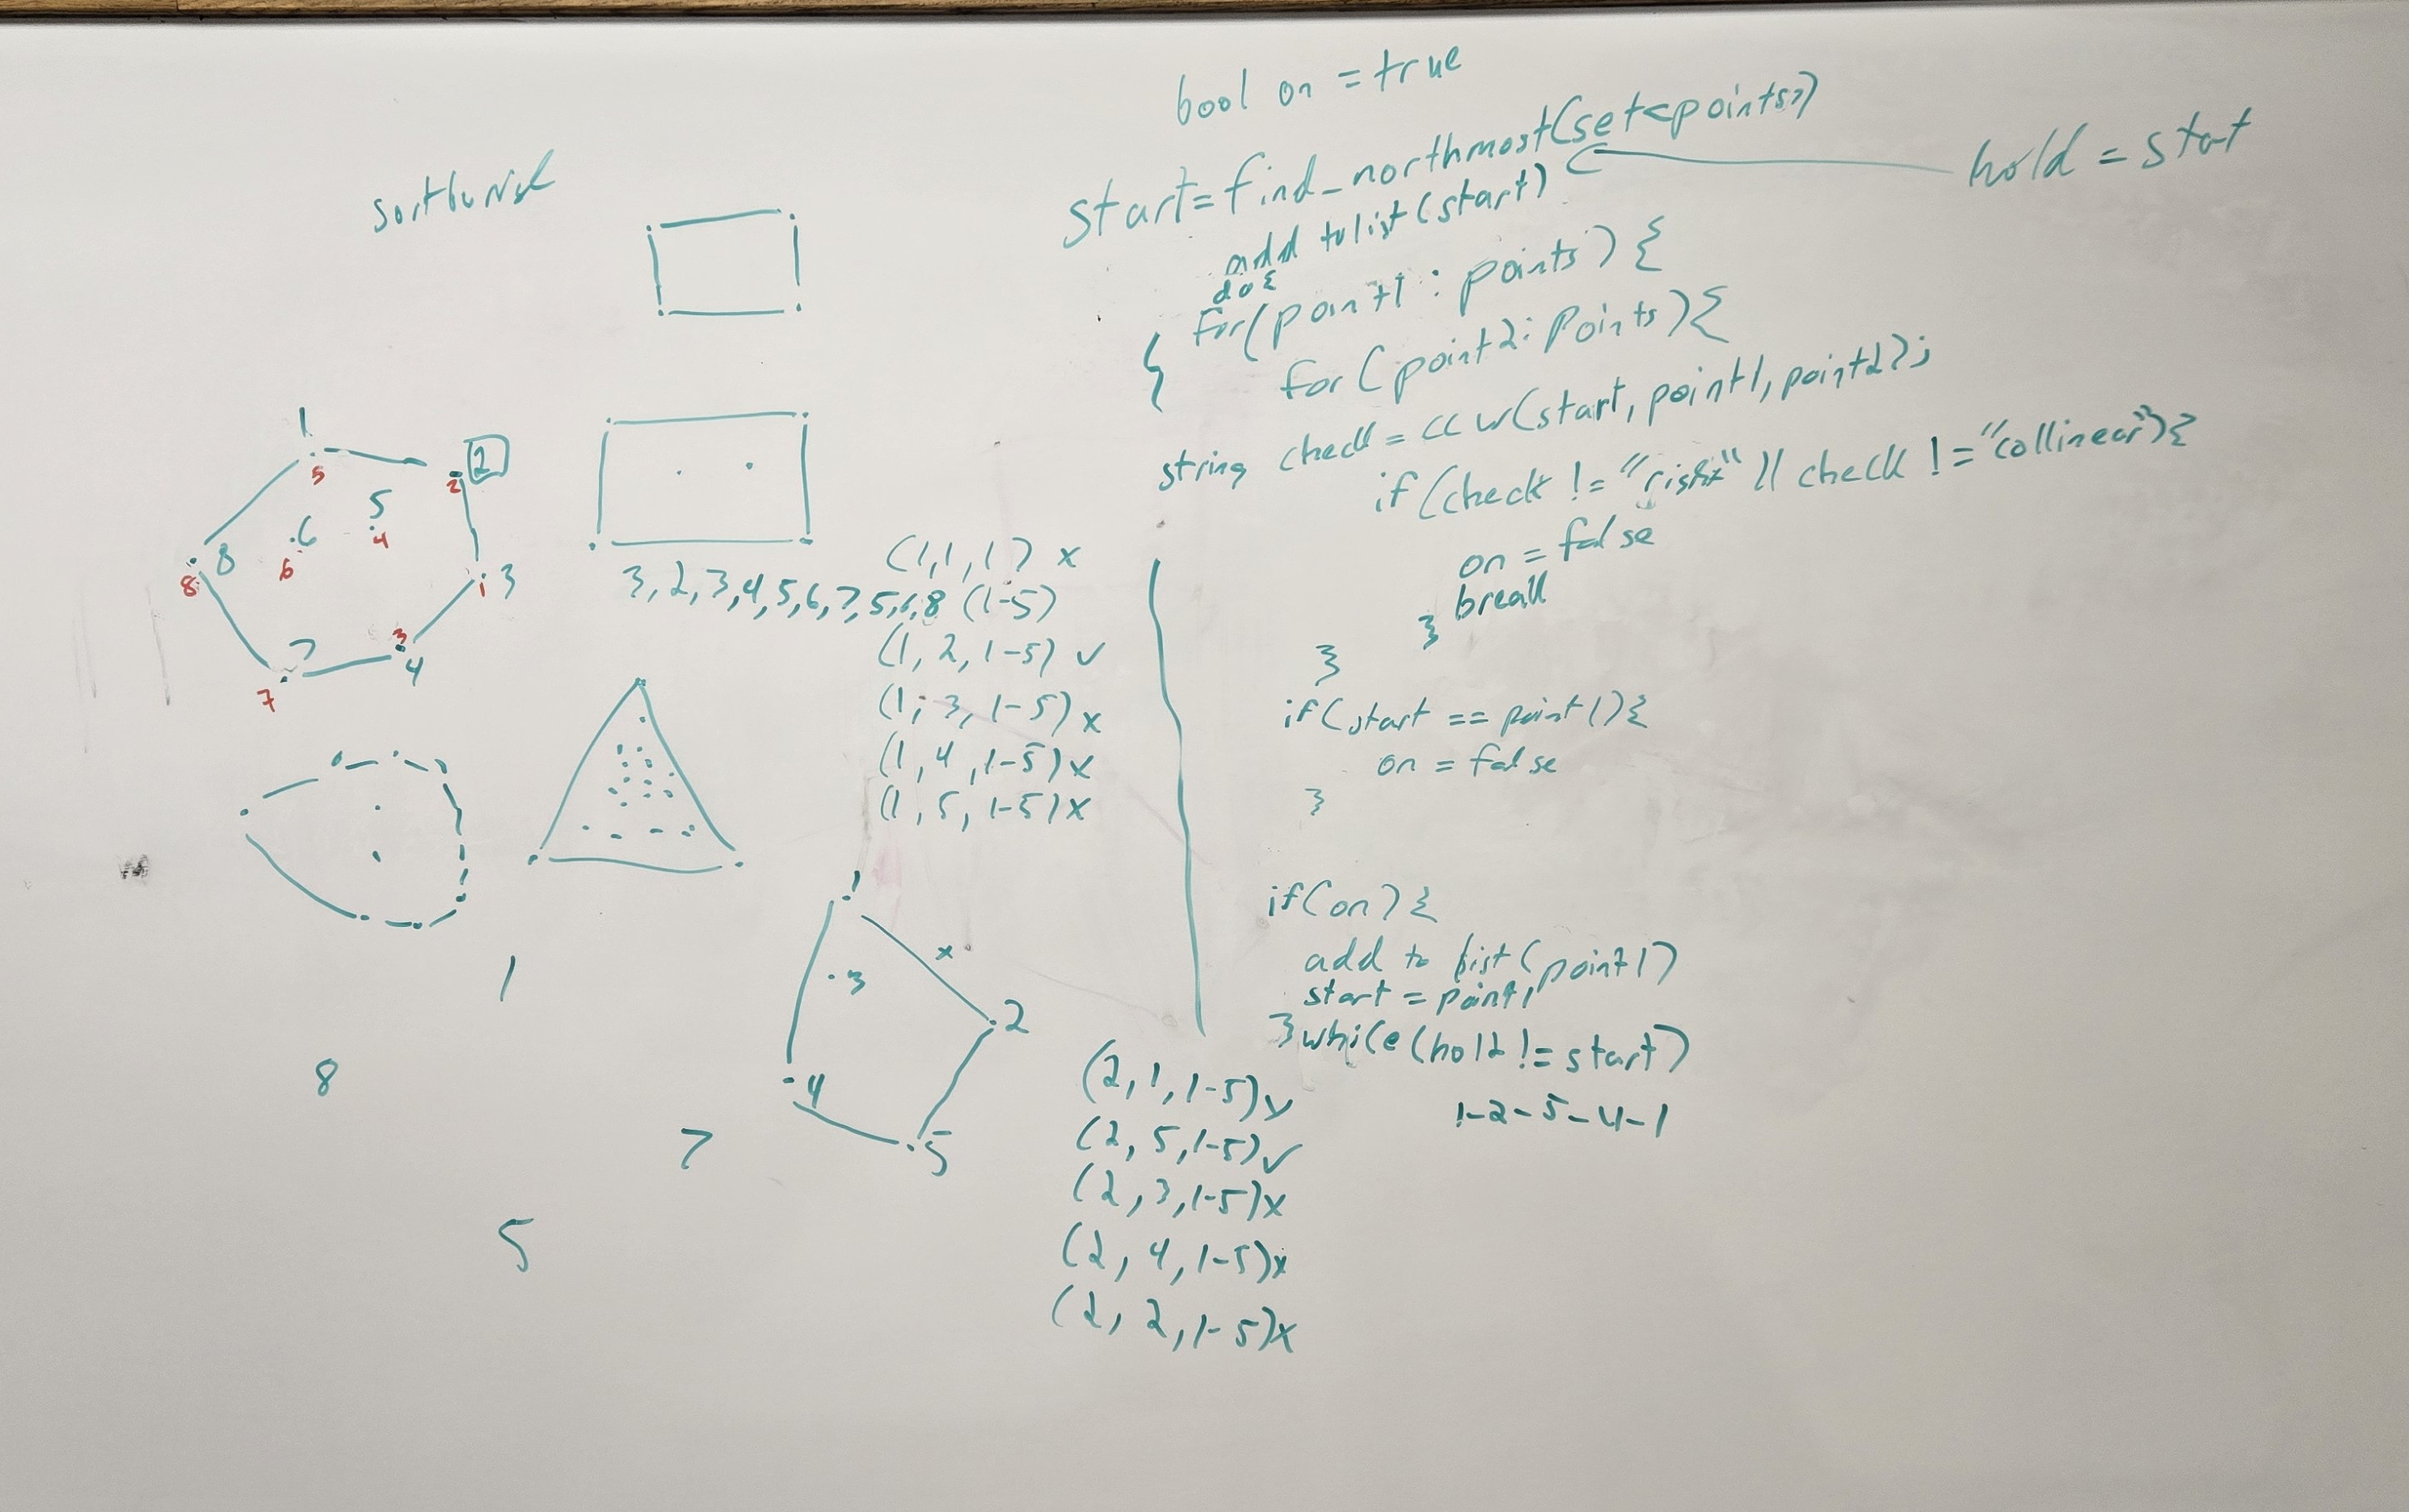 bool on = true
start=find_northmost(set<points>)
hold = start
add to list(start)
do{
for(point1 : points) {
{
for(point2: Points){
string check = ccw(start, point1, point2);
if(check != "right" || check != "collinear"){
on = false
break
}
}
if(start == point1){
on = false
}
if(on){
add to list(point1)
start = point1
}while(hold != start)
1-2-5-4-1
1
5
2
2
5
4
6
6
8
8
1
3
3
4
7
7
(1,1,1) x
3,2,3,4,5,6,7,5,6,8 (1-5)
(1, 2, 1-5) ✓
(1, 3, 1-5) x
(1, 4, 1-5) x
(1, 5, 1-5) x
1
x
3
2
4
5
1
8
7
5
(2, 1, 1-5)
(2, 5, 1-5) ✓
(2, 3, 1-5)x
(2, 4, 1-5)x
(2, 2, 1-5)x